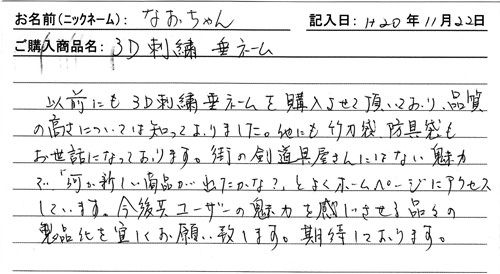 お名前(ニックネーム): なおちゃん 記入日: H20年11月22日
ご購入商品名: 3D刺繍 垂ネーム
以前にも3D刺繍垂ネームを購入させて頂いており、品質
の高さについては知っておりました。他にも竹刀袋、防具袋も
お世話になっております。街の剣道具屋さんにはない魅力
で「何か新しい商品が出たかな?」とよくホームページにアクセス
しています。今後共ユーザーの魅力を感じさせる品々の
製品化を宜しくお願い致します。期待しております。